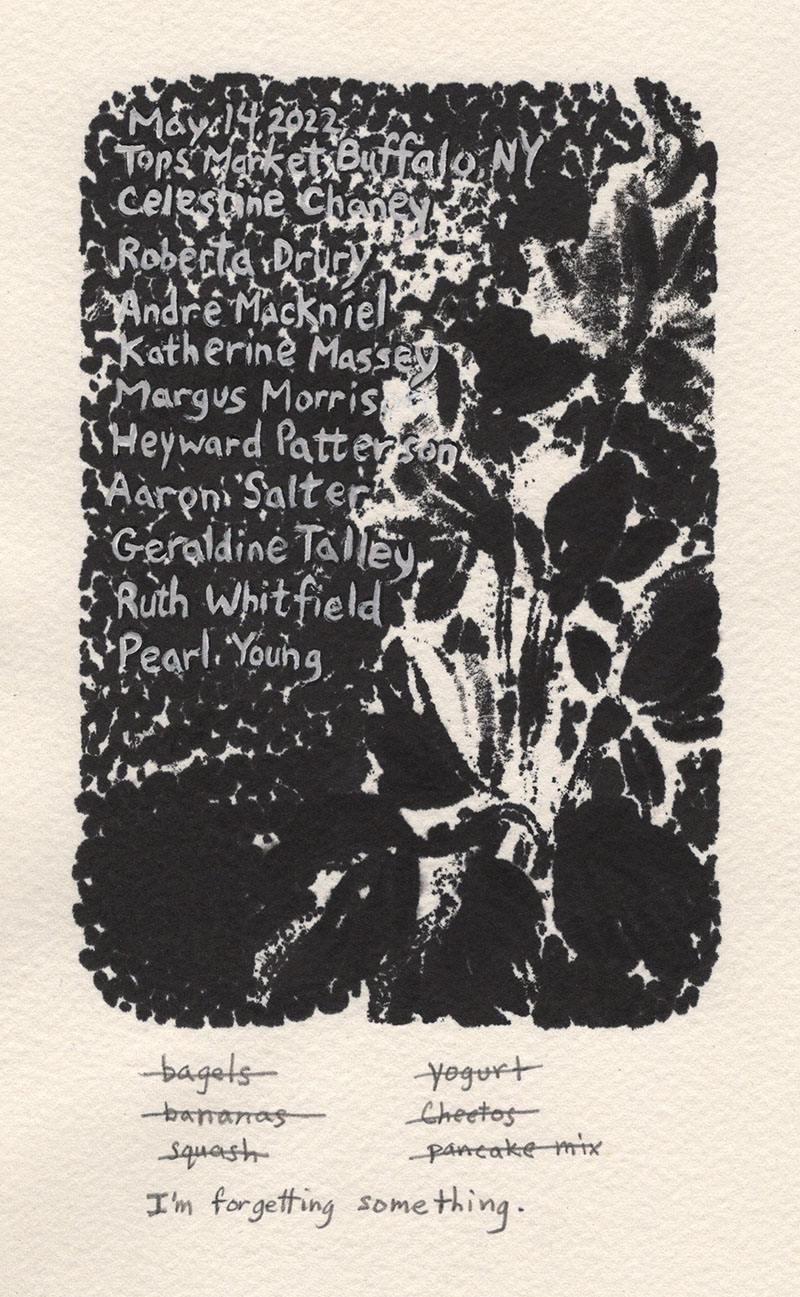 May 14, 2022
Tops Market, Buffalo, NY
Celestine Chaney
Roberta Drury
Andre Mackniel
Katherine Massey
Margus Morrison
Heyward Patterson
Aaron Salter
Geraldine Talley
Ruth Whitfield
Pearl Young
bagels
yogurt
bananas
Cheetos
squash
pancake mix
I'm forgetting something.